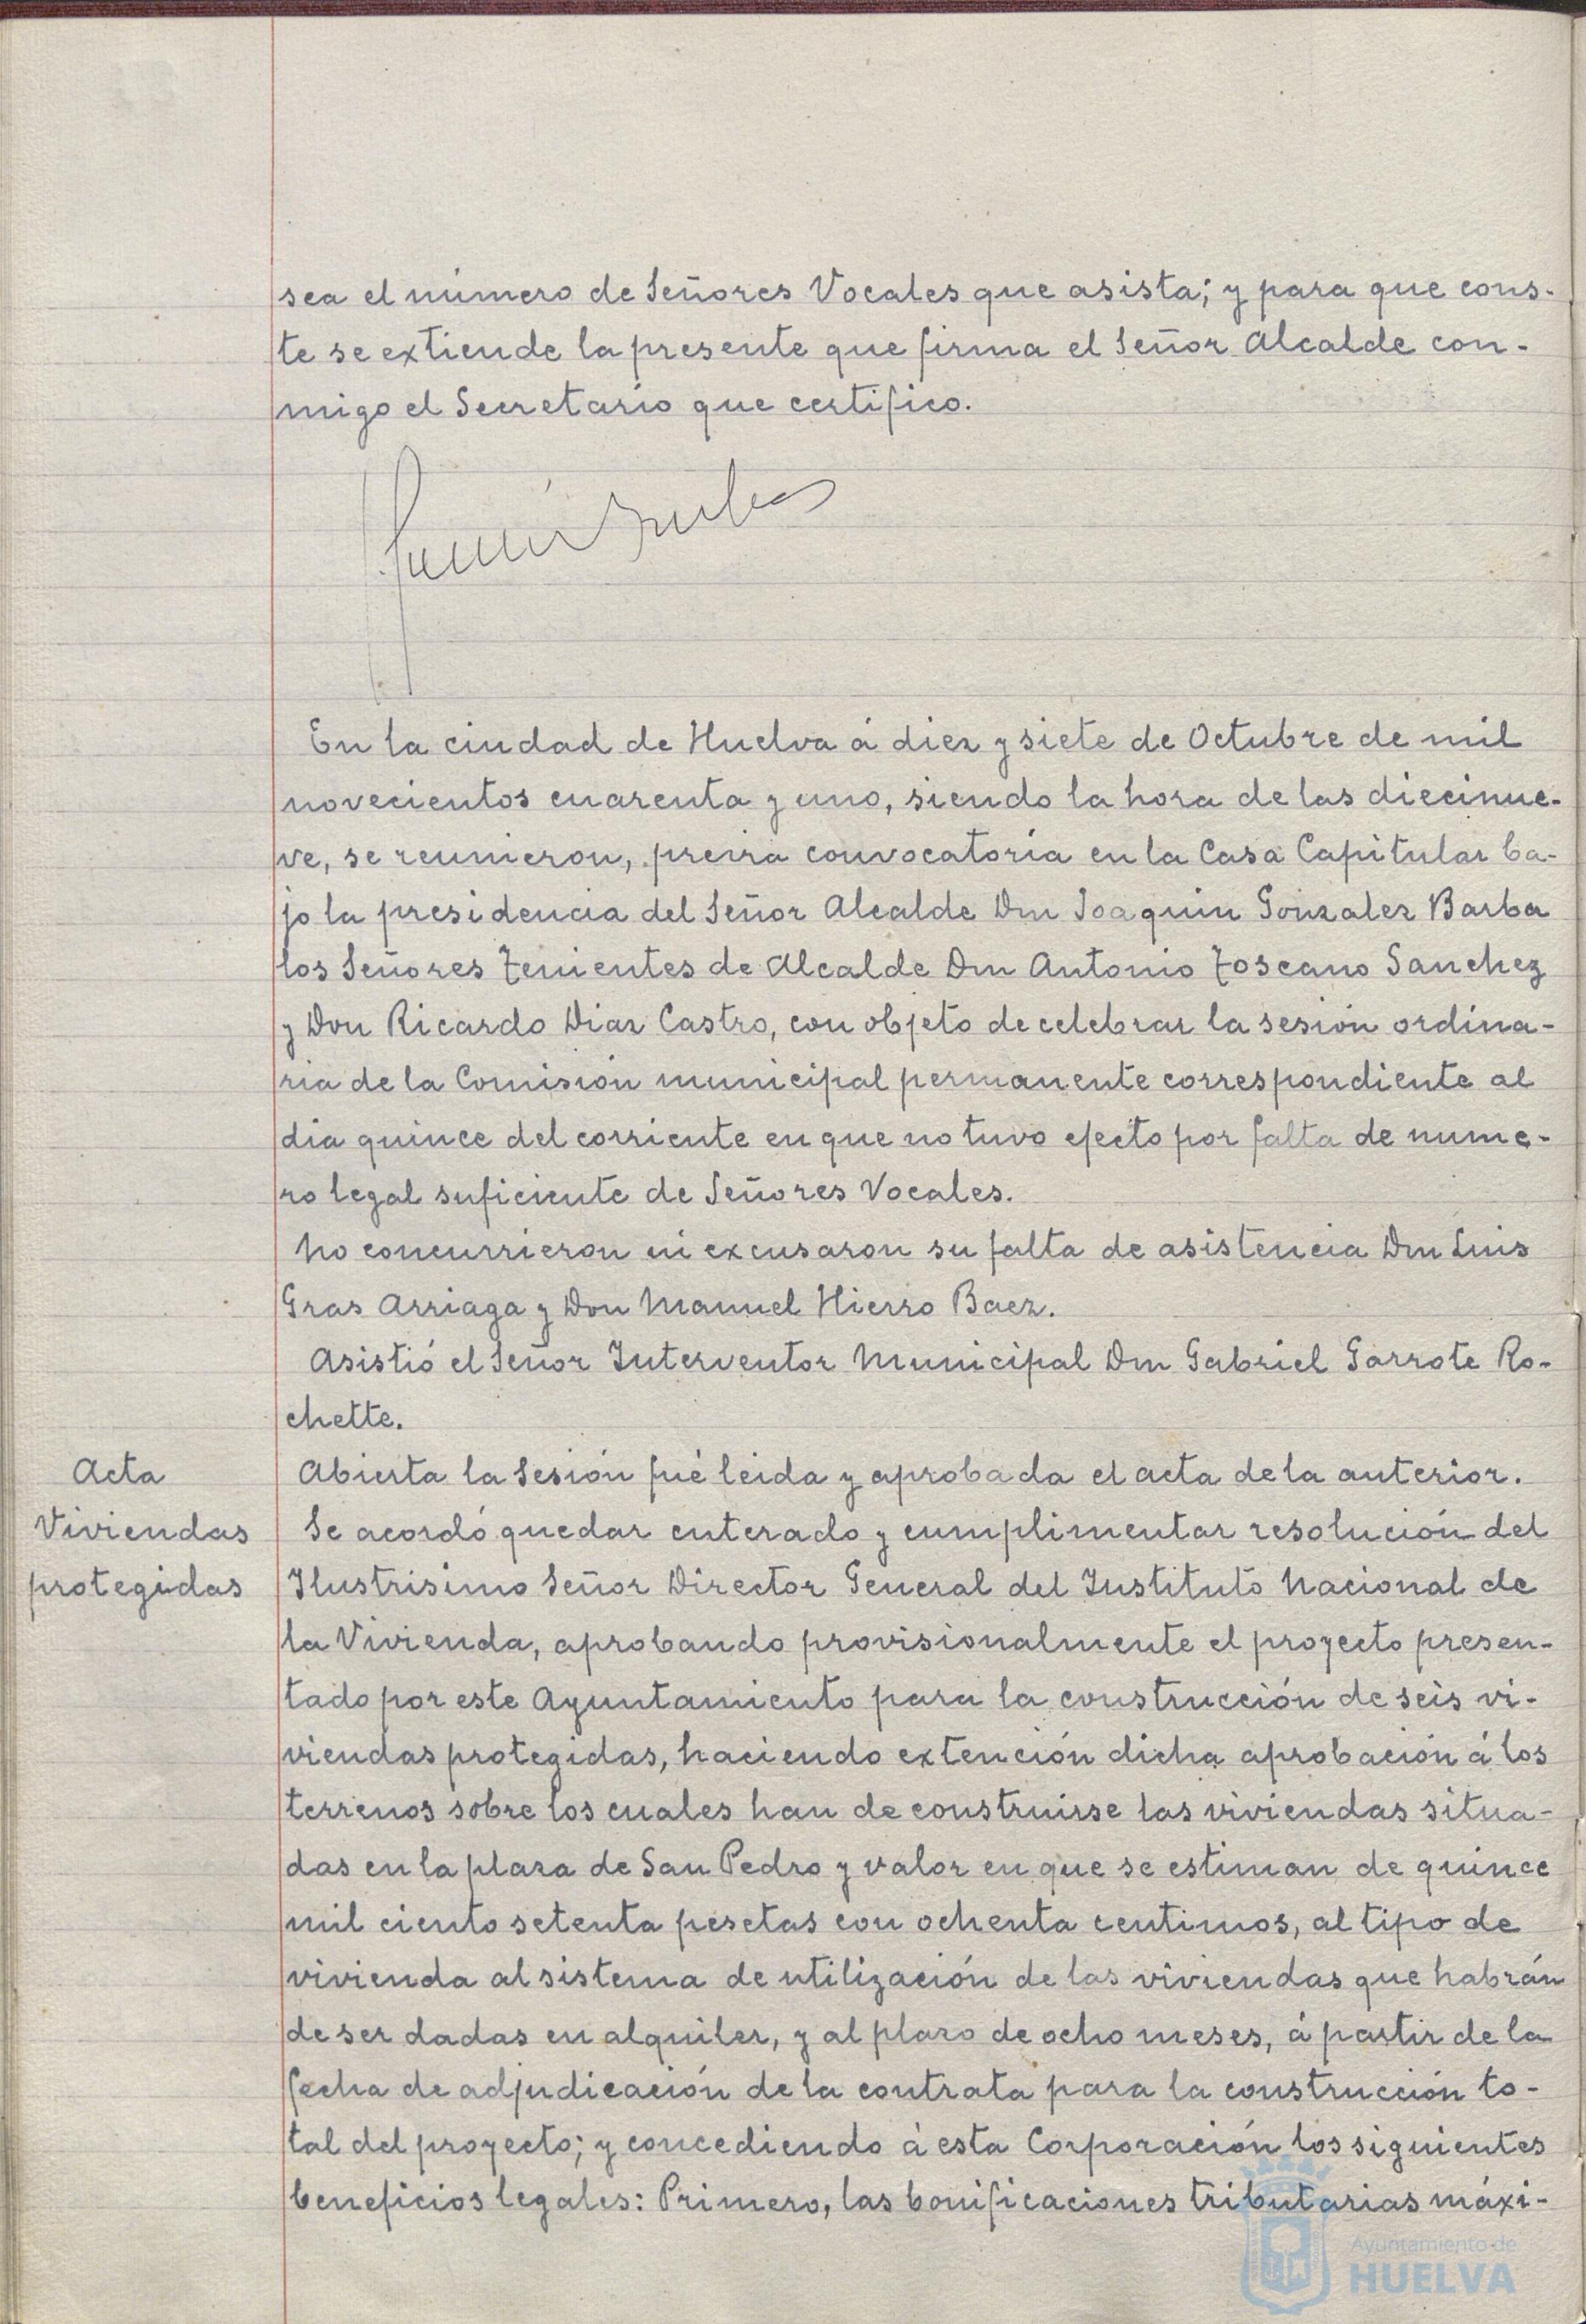 sea el número de Señores Vocales que asista; y para que cons-
te se extiende la presente que firma el Señor Alcalde con-
migo el Secretario que certifico.
En la ciudad de Huelva á diez y siete de Octubre de mil
novecientos cuarenta y uno, siendo la hora de las diecinue-
ve, se reunieron, previa convocatoria en la Casa Capitular ba-
jo la presidencia del Señor Alcalde Don Joaquin Gonzalez Barba
los Señores Tenientes de Alcalde Don Antonio Toscano Sanchez
y Don Ricardo Diaz Castro, con objeto de celebrar la sesión ordina-
ria de la Comisión municipal permanente correspondiente al
dia quince del corriente en que no tuvo efecto por falta de nume-
ro legal suficiente de Señores Vocales.
No concurrieron ni excusaron su falta de asistencia Don Luis
Gras Arriaga y Don Manuel Hierro Baez.
Asistió el Señor Interventor Municipal Don Gabriel Garrote Ro-
chette.
Acta
Abierta la Sesión fué leida y aprobada el acta de la anterior.
Viviendas
Se acordó quedar enterado y cumplimentar resolución del
protegidas
Ilustrisimo Señor Director General del Instituto Nacional de
la Vivienda, aprobando provisionalmente el proyecto presen-
tado por este Ayuntamiento para la construcción de seis vi-
viendas protegidas, haciendo extención dicha aprobación á los
terrenos sobre los cuales han de construirse las viviendas situa-
das en la plaza de San Pedro y valor en que se estiman de quince
mil ciento setenta pesetas con ochenta centimos, al tipo de
vivienda al sistema de utilización de las viviendas que habrán
de ser dadas en alquiler, y al plazo de ocho meses, á partir de la
fecha de adjudicación de la contrata para la construcción to-
tal del proyecto; y concediendo á esta Corporación los siguientes
beneficios legales: Primero, las bonificaciones tributarias máxi-
Ayuntamiento de
HUELVA